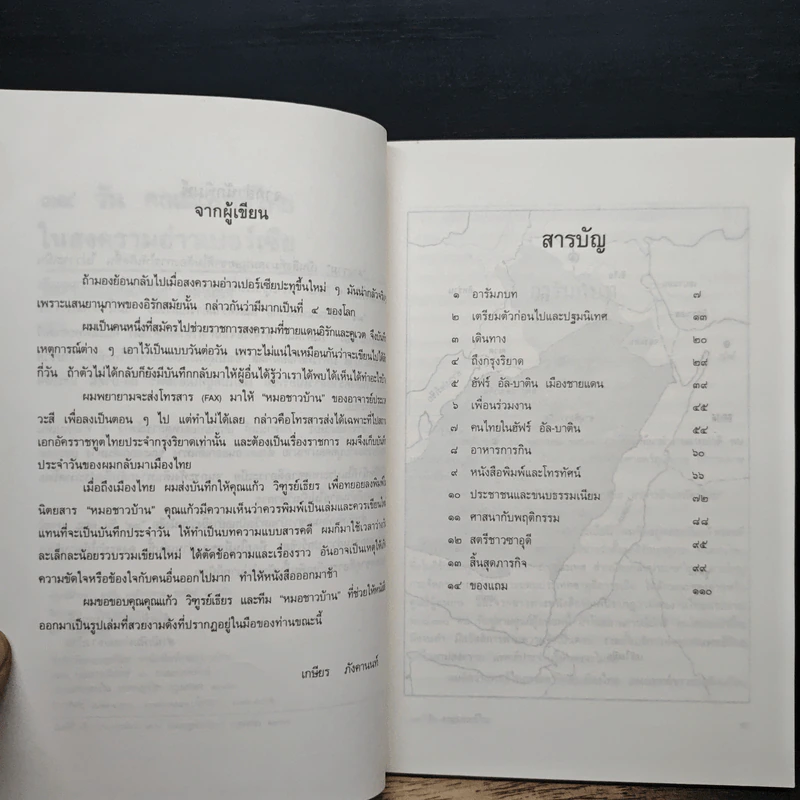 จากผู้เขียน
ถ้ามองย้อนกลับไปเมื่อสงครามอ่าวเปอร์เซียปะทุขึ้นใหม่ ๆ มันน่ากลัวจริง
เพราะแสนยานุภาพของอิรักสมัยนั้น กล่าวกันว่ามีมากเป็นที่ ๔ ของโลก
ผมเป็นคนหนึ่งที่สมัครไปช่วยราชการสงครามที่ชายแดนอิรักและคูเวต จึงบันทึก
เหตุการณ์ต่าง ๆ เอาไว้เป็นแบบวันต่อวัน เพราะไม่แน่ใจเหมือนกันว่าจะเขียนไปได้
กี่วัน ถ้าตัวไม่ได้กลับก็ยังมีบันทึกกลับมาให้ผู้อื่นได้รู้ว่าเราได้พบได้เห็นได้ทำอะไร
ผมพยายามจะส่งโทรสาร (FAX) มาให้ "หมอชาวบ้าน" ของอาจารย์ประเวศ
วะสี เพื่อลงเป็นตอน ๆ ไป แต่ทำไม่ได้เลย กล่าวคือโทรสารส่งได้เฉพาะที่
เอกอัครราชทูตไทยประจำกรุงริยาดเท่านั้น และต้องเป็นเรื่องราชการ ผมจึงเก็บบันทึก
ประจำวันของผมกลับมาเมืองไทย
เมื่อถึงเมืองไทย ผมส่งบันทึกให้คุณแก้ว วิฑูรย์เธียร เพื่อทยอยลงพิมพ์
นิตยสาร "หมอชาวบ้าน" คุณแก้วมีความเห็นว่าควรพิมพ์เป็นเล่มและควรเขียน
แทนที่จะเป็นบันทึกประจำวัน ให้ทำเป็นบทความแบบสารคดี ผมก็มาใช้เวลาว่าง
ละเล็กละน้อยรวบรวมเขียนใหม่ ได้ตัดข้อความและเรื่องราว อันอาจเป็นเหตุให้
ความขัดใจหรือข้องใจกับคนอื่นออกไปมาก ทำให้หนังสือออกมาช้า
ผมขอขอบคุณคุณแก้ว วิฑูรย์เธียร และทีม "หมอชาวบ้าน" ที่ช่วยให้
ออกมาเป็นรูปเล่มที่สวยงามดังที่ปรากฏอยู่ในมือของท่านขณะนี้
เกษียร ภังคานนท์
สารบัญ
๑ อารัมภบท ๗
๒ เตรียมตัวก่อนไปและปฐมนิเทศ ๑๓
๓ เดินทาง ๒๐
๔ ถึงกรุงริยาด ๒๙
๕ ฮัฟร์ อัล-บาติน เมืองชายแดน ๓๙
๖ เพื่อนร่วมงาน ๔๕
๗ คนไทยในฮัฟร์ อัล-บาติน ๕๔
๘ อาหารการกิน ๖๐
๙ หนังสือพิมพ์และโทรทัศน์ ๖๖
๑๐ ประชาชนและขนบธรรมเนียม ๗๒
๑๑ ศาสนากับพฤติกรรม ๘๘
๑๒ สตรีชาวซาอุดี ๙๕
๑๓ สิ้นสุดภารกิจ ๙๙
๑๔ ของแถม ๑๑๐